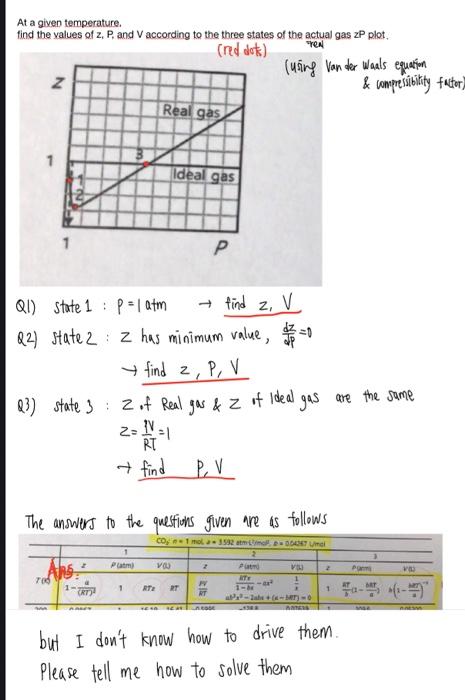 At a given temperature,
find the values of z, P, and V according to the three states of the actual gas zP plot.
(red dots)
real
(using Van der Waals equation
& compressibility factor)
Z
Real gas
1
3
Ideal gas
1
2
1
P
Q1) state 1 : P = 1 atm → find z, V
Q2) state 2 : Z has minimum value, dz/dP = 0
→ find z, P, V
Q3) state 3 : Z of Real gas & Z of Ideal gas are the same
Z = PV/RT = 1
→ find P, V
The answers to the questions given are as follows
CO₂: n = 1 mol, a = 3.592 atm·L²/mol², b = 0.04267 L/mol
1 2 3
Ans.
T(K) z P(atm) V(L) z P(atm) V(L) z P(atm) V(L)
1 - a/(RT)² 1 RTz RT PV/RT RTx/(1-bx) - ax² 1/x 1 RT/b (1 - bRT/a) b(1 - bRT/a)⁻¹
ab²x² - 2abx + (a - bRT) = 0
but I don't know how to drive them.
Please tell me how to solve them